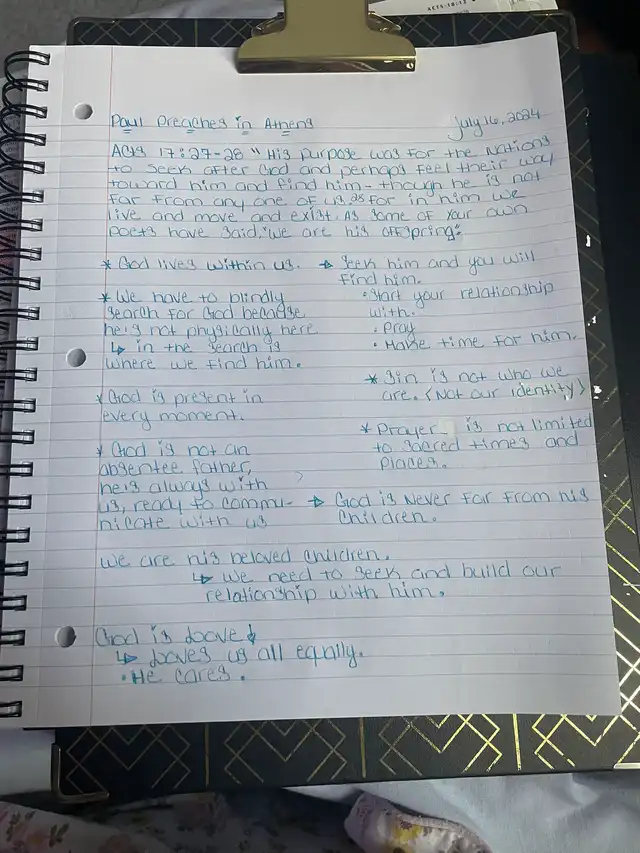 Paul Preaches in Athens
July 16, 2024
Acts 17:27-28 "His purpose was for the Nations
to seek after God and perhaps feel their way
toward him and find him - though he is not
far from any one of us. 28 for in him we
live and move and exist. As some of your own
poets have said, "we are his offspring".
* God lives within us.
* We have to blindly
search for God because
he is not physically here
↳ in the search is
where we find him.
* God is present in
every moment.
* God is not an
absentee father,
he is always with
us, ready to commu-
nicate with us
→ Seek him and you will
find him.
• Start your relationship
with.
• Pray
• Make time for him.
* Sin is not who we
are. (Not our identity)
* Prayer is not limited
to sacred times and
places.
→ God is Never far from his
Children.
we are his beloved children.
↳ we need to seek and build our
relationship with him.
God is Love
↳ Loves us all equally.
• He cares.